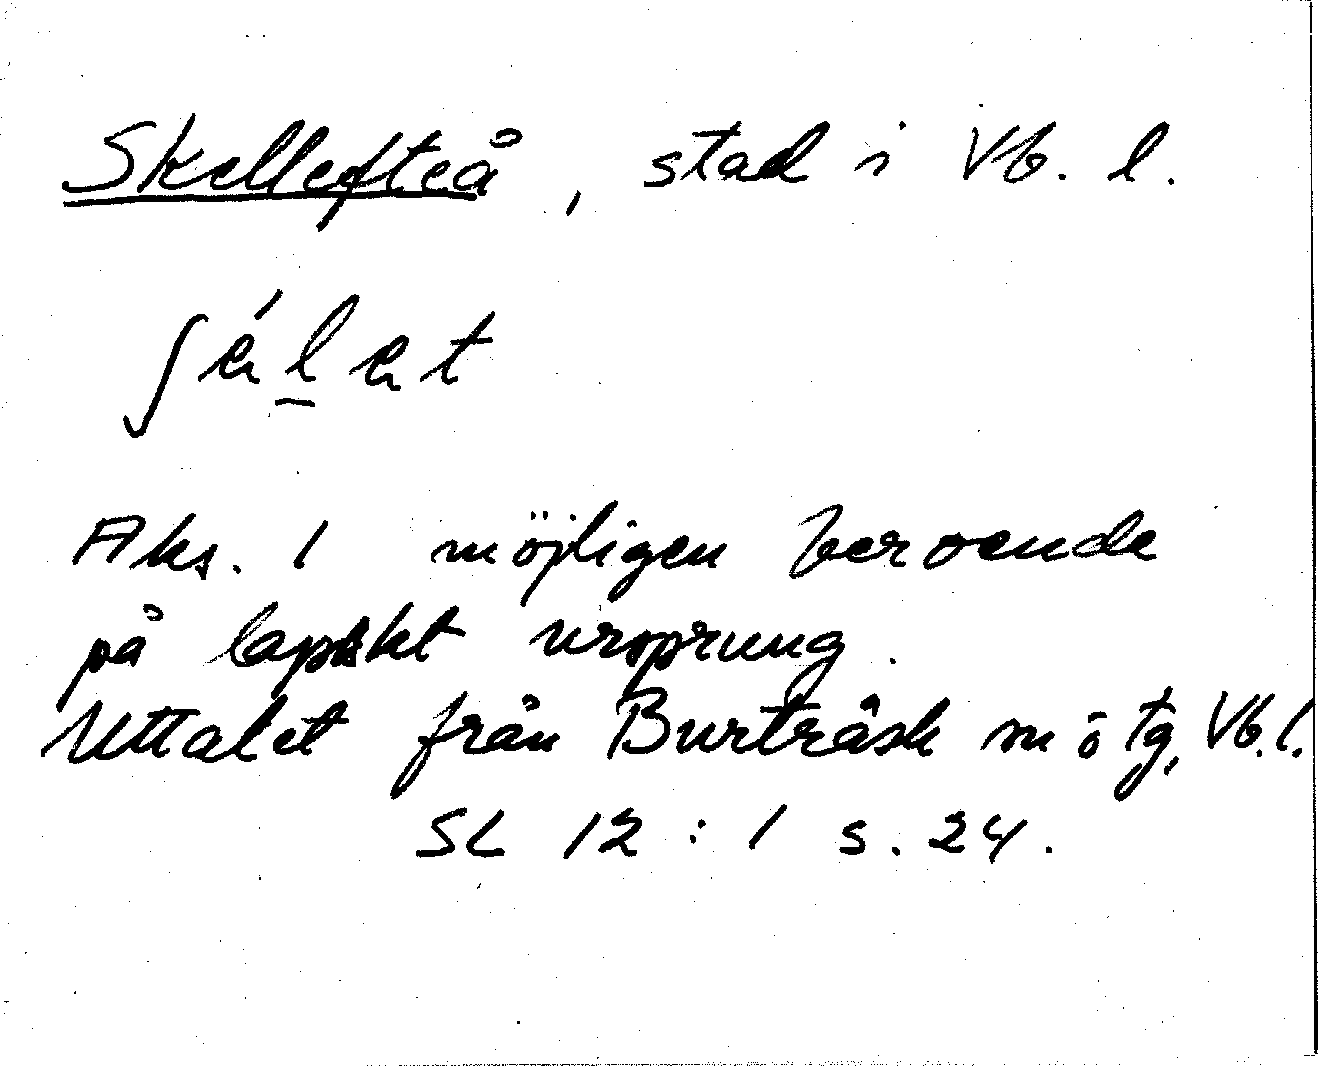 Skellefteå, stad i Vb. l.
ʃélet
Aks. 1 möjligen beroende
på lapskt ursprung.
Uttalet från Burträsk m ö tg, Vb. l.
SL 12:1 s. 24.